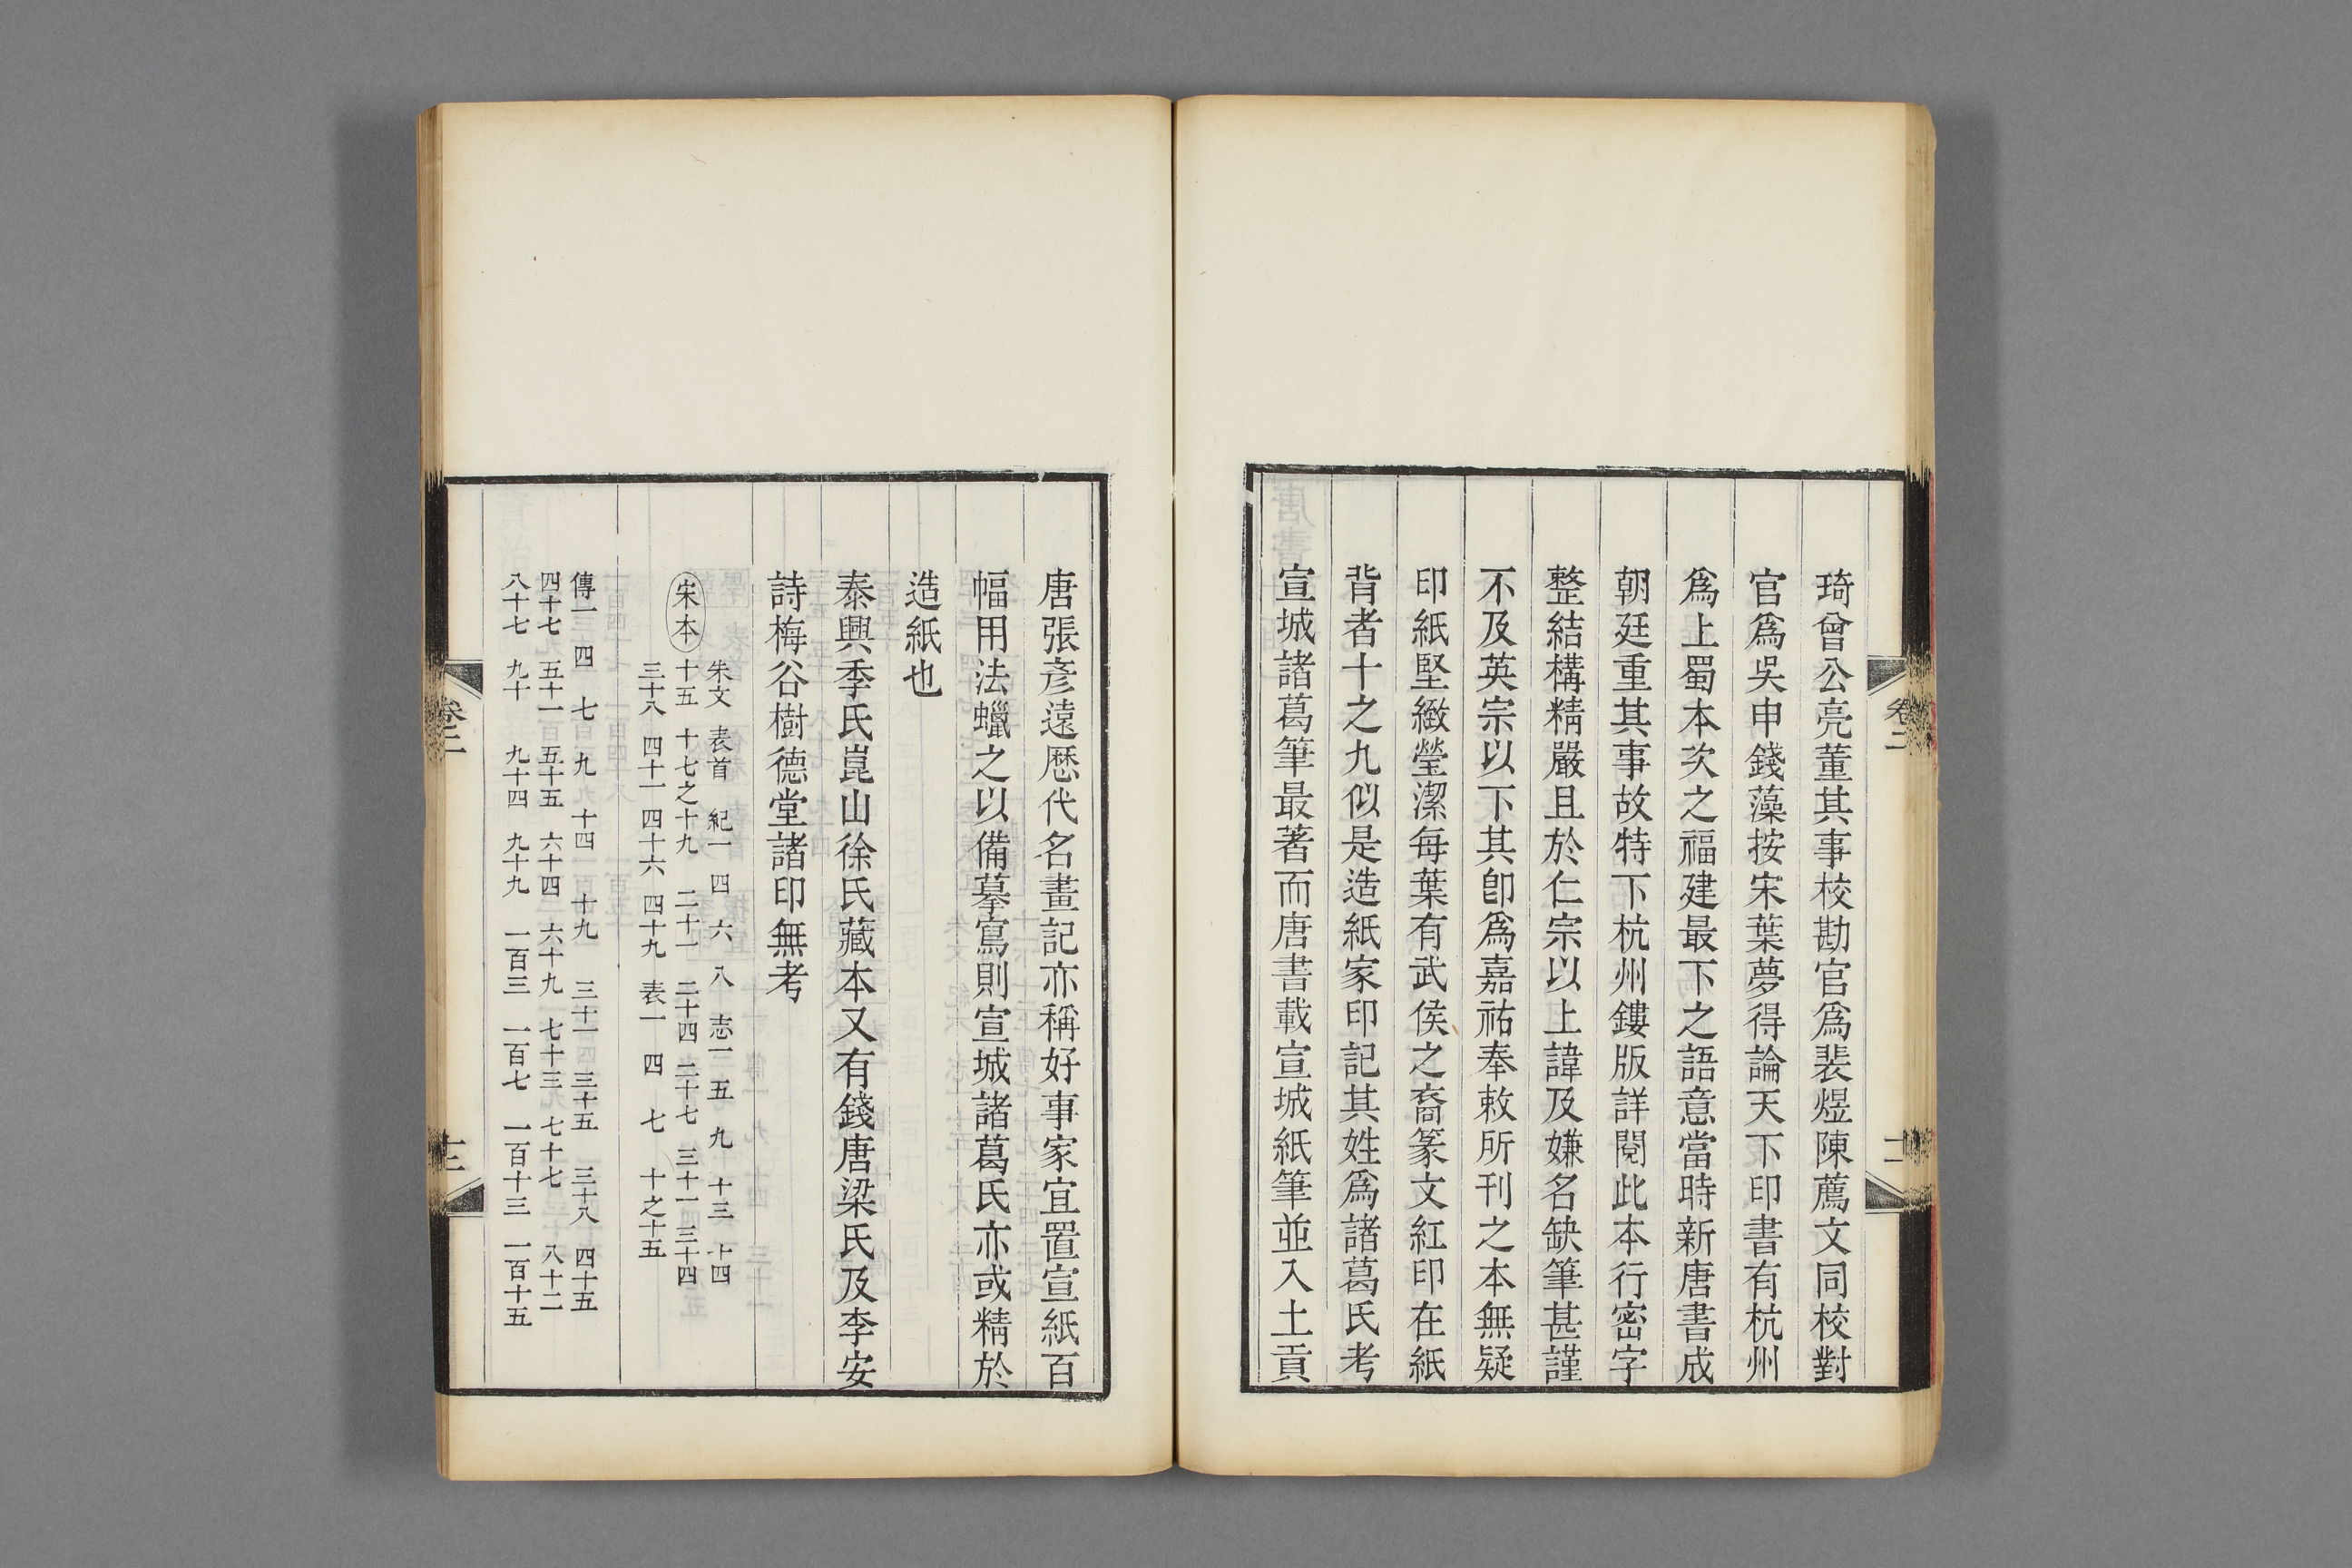 琦曾公亮董其事校勘官爲裴煜陳薦文同校對
官爲吳申錢藻按宋葉夢得論天下印書有杭州
爲上蜀本次之福建最下之語意當時新唐書成
朝廷重其事故特下杭州鏤版詳閱此本行密字
整結構精嚴且於仁宗以上諱及嫌名缺筆甚謹
不及英宗以下其卽爲嘉祐奉敕所刊之本無疑
印紙堅緻瑩潔每葉有武侯之裔篆文紅印在紙
背者十之九似是造紙家印記其姓爲諸葛氏考
宣城諸葛筆最著而唐書載宣城紙筆並入土貢
卷二
十二
唐張彥遠歷代名畫記亦稱好事家宜置宣紙百
幅用法蠟之以備摹寫則宣城諸葛氏亦或精於
造紙也
泰興季氏崑山徐氏藏本又有錢唐梁氏及李安
詩梅谷樹德堂諸印無考
宋本
朱文 表首 紀一 四 六 八 志一 五 九 十三 十四
十五 十七之十九 二十一 二十四 二十七 三十一 三十四
三十八 四十一 四十六 四十九 表一 四 七 十之十五
傳一 四 七 九 十四 十九 三十一 三十五 三十八 四十五
四十七 五十一 五十五 六十四 六十九 七十三 七十七 八十二
八十七 九十 九十四 九十九 一百三 一百七 一百十三 一百十五
卷二
十三